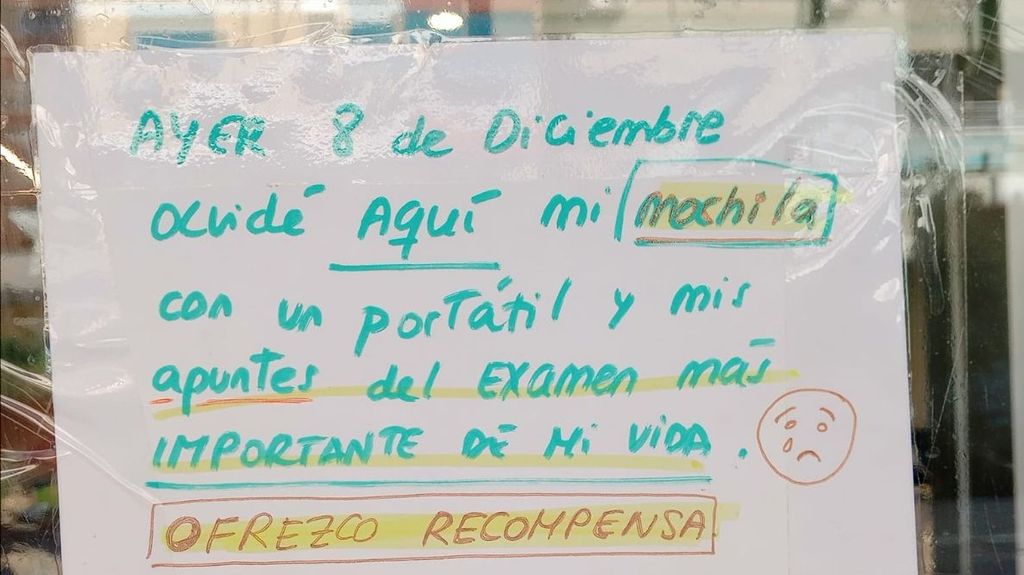 AYER 8 de Diciembre
olvidé AQUÍ mi mochila
con un portátil y mis
apuntes del EXAMEN más
IMPORTANTE DE MI VIDA.
OFREZCO RECOMPENSA